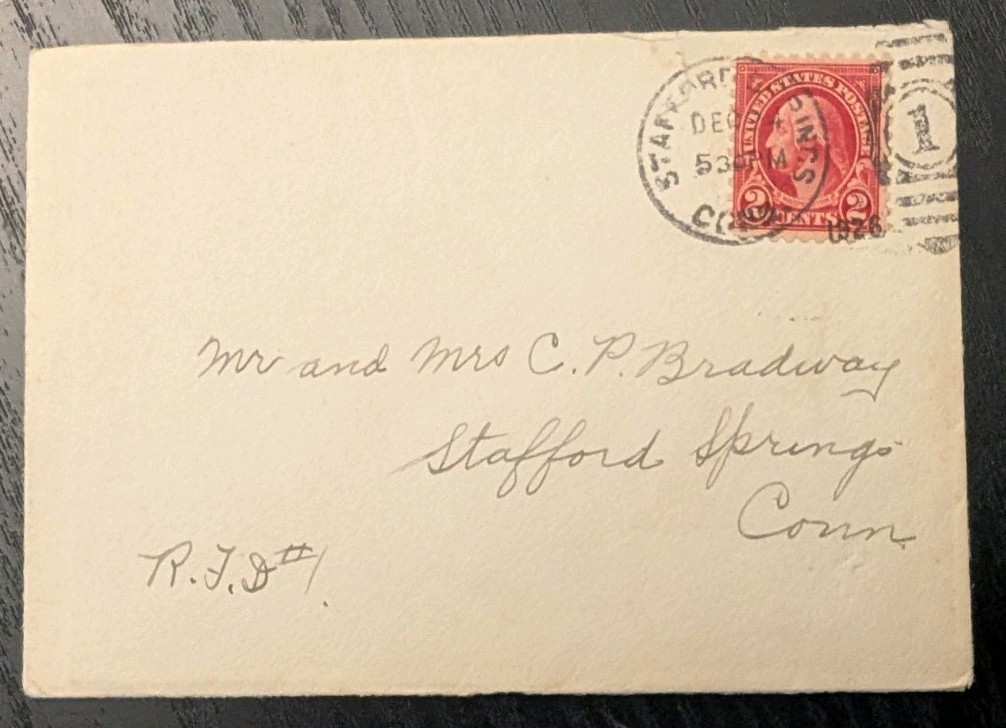 STAFFORD SPINGS
DEC 4
530 PM
CONN
1926
1
UNITED STATES POSTAGE
2 CENTS 2
Mr and Mrs C. P. Bradway
Stafford Springs
Conn.
R.F.D #1.